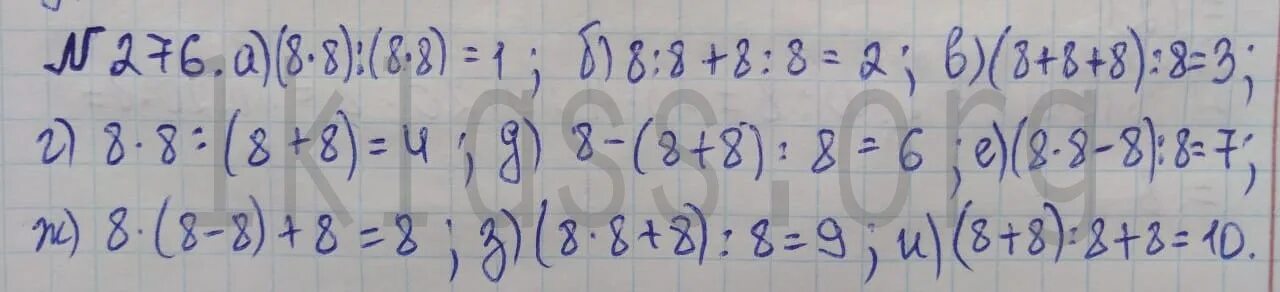 № 276. а) (8·8):(8·8) = 1; б) 8:8 + 8:8 = 2; в) (8+8+8):8=3;
г) 8·8:(8+8) = 4; д) 8-(8+8):8 = 6; е) (8·8-8):8=7;
ж) 8·(8-8)+8 = 8; з) (8·8+8):8=9; и) (8+8):8+8=10.
1klass.org